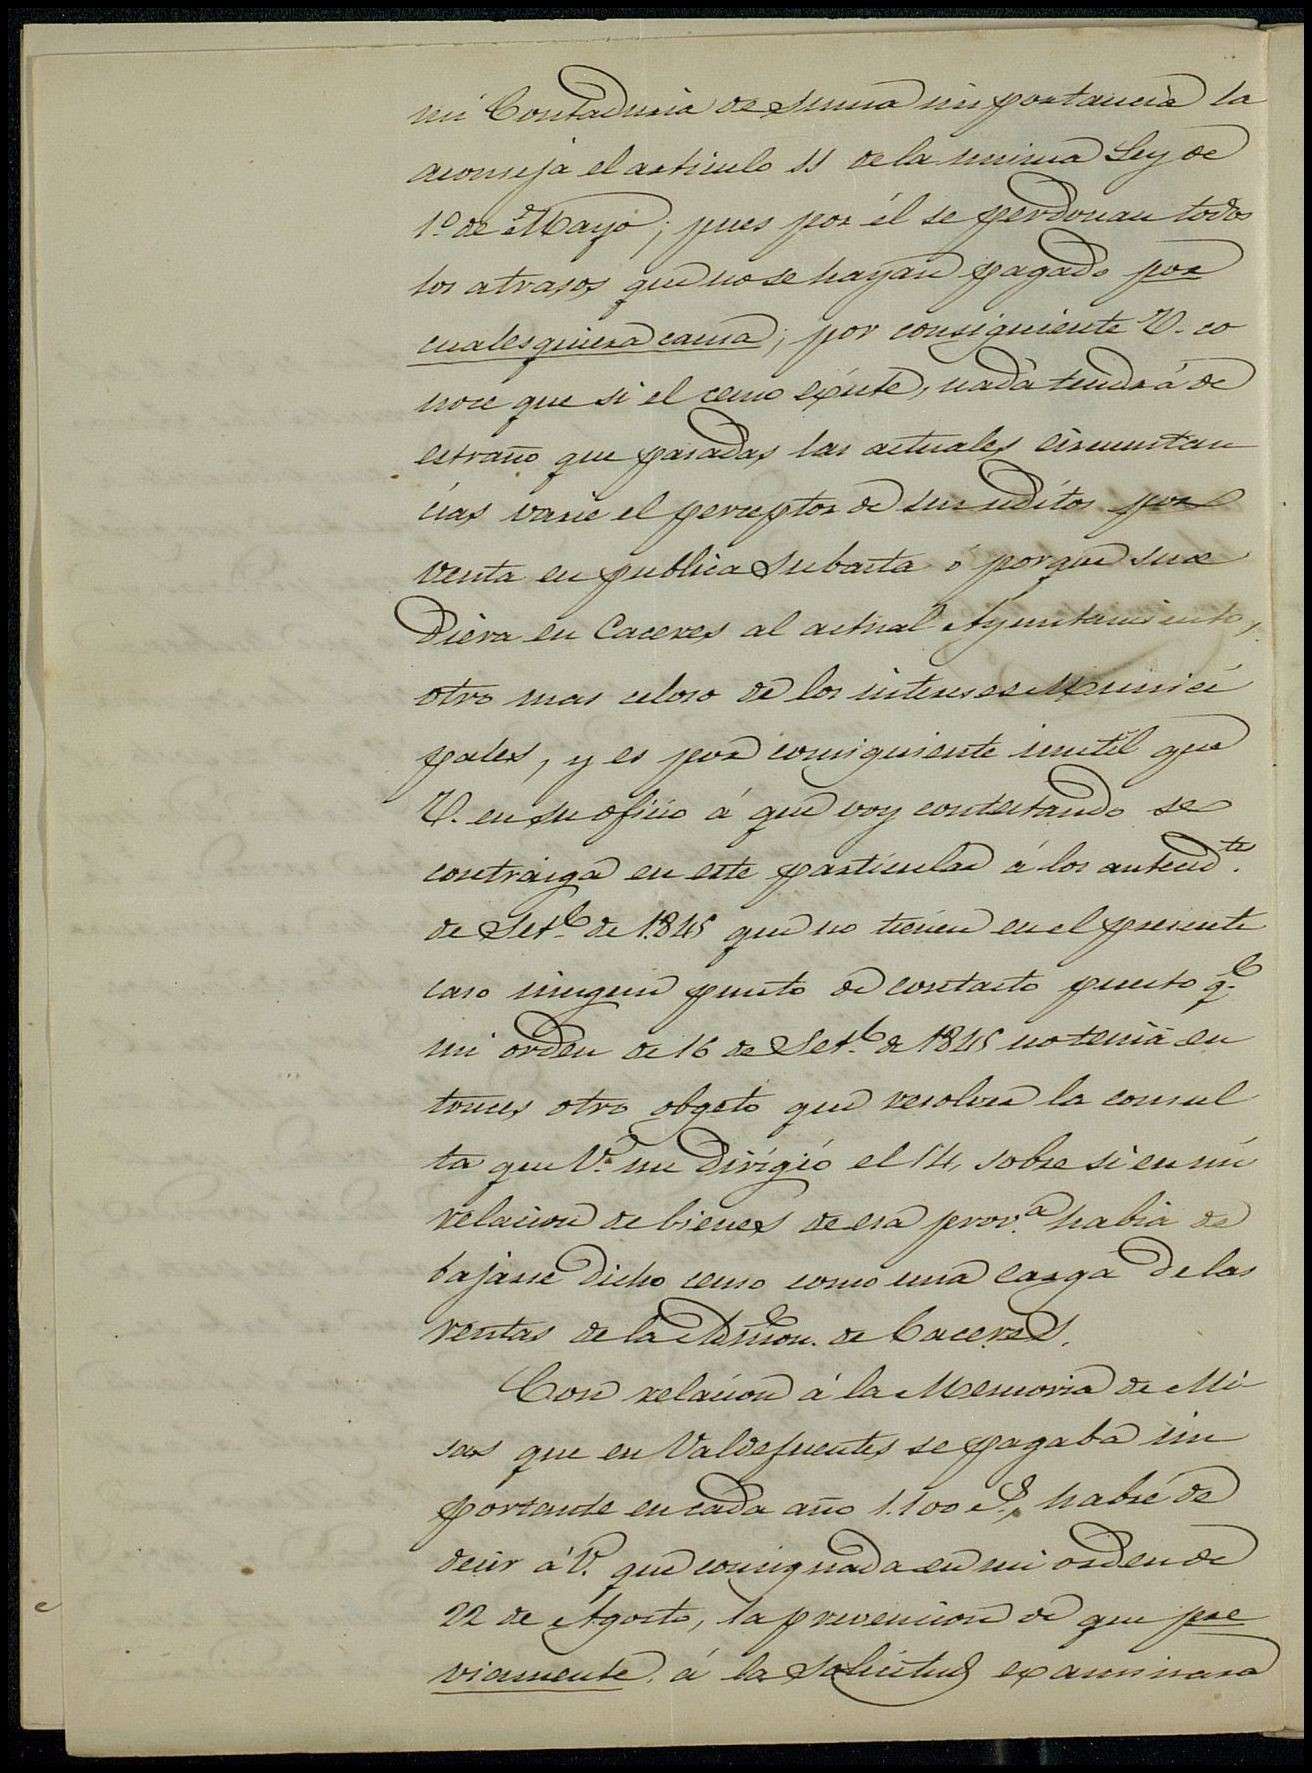 mi Contaduria de suma importancia la
aconseja el articulo 11 de la misma Ley de
1º de Mayo; pues por él se perdonan todos
los atrasos que no se hayan pagado por
cualesquiera causa; por consiguiente V. co
noce que si el censo existe, nada tendrá de
estraño que pasadas las actuales circunstan
cias varie el perceptor de sus reditos por
venta en publica subasta ó porque suce
diera en Caceres al actual Ayuntamiento,
otro mas celoso de los intereses Munici
pales, y es por consiguiente inutil que
V. en su oficio á que voy contestando se
contraiga en este particular á los anteced.tes
de Set.e de 1845 que no tienen en el presente
caso ningun punto de contacto puesto q.e
mi orden de 16 de Set.e de 1845 no tenia en
tonces otro objeto que resolver la consul
ta que V. me dirigió el 14, sobre si en mi
relacion de bienes de esa prov.a habia de
bajarse dicho censo como una carga de las
rentas de la Admon. de Caceres.
Con relacion á la Memoria de Mi
sas que en Valdefuentes se pagaba im
portante en cada año 1.100 r.s, habré de
decir á V. que consignada en mi orden de
22 de Agosto, la prevencion de que pre
viamente á la solicitud examinara